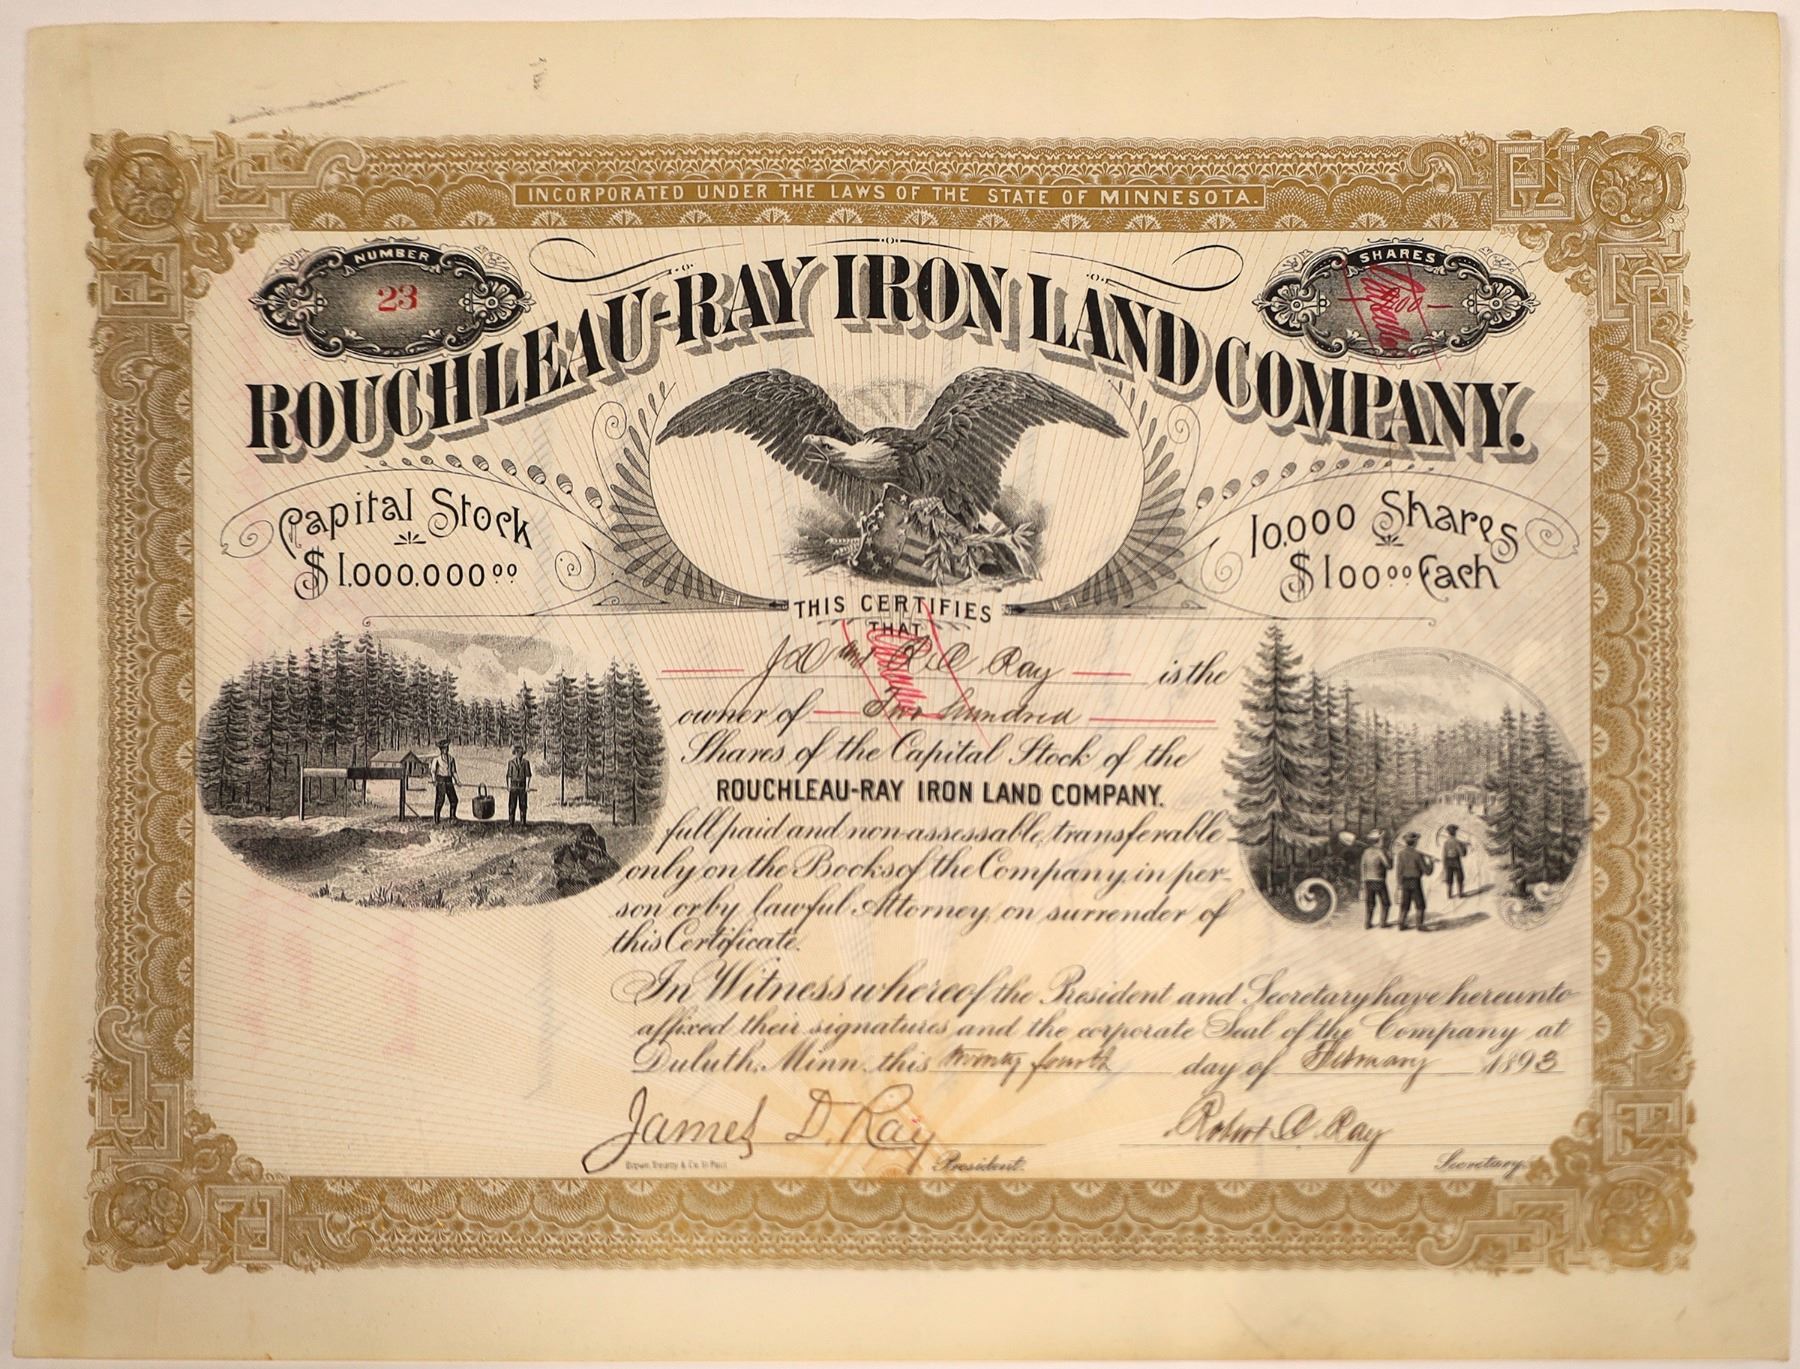 INCORPORATED UNDER THE LAWS OF THE STATE OF MINNESOTA.
NUMBER
23
SHARES
200
ROUCHLEAU-RAY IRON LAND COMPANY.
Capital Stock
$1,000,000.00
10,000 Shares
$100.00 Each
THIS CERTIFIES
THAT
J D and R C Ray is the
owner of Two hundred
Shares of the Capital Stock of the
ROUCHLEAU-RAY IRON LAND COMPANY.
full paid and non-assessable, transferable
only on the Books of the Company, in per-
son or by lawful Attorney, on surrender of
this Certificate.
In Witness whereof the President and Secretary have hereunto
affixed their signatures and the corporate Seal of the Company at
Duluth, Minn. this twenty fourth day of February 1893
James D. Ray
Robert C. Ray
Brown, Treacy & Co. St. Paul
President.
Secretary.